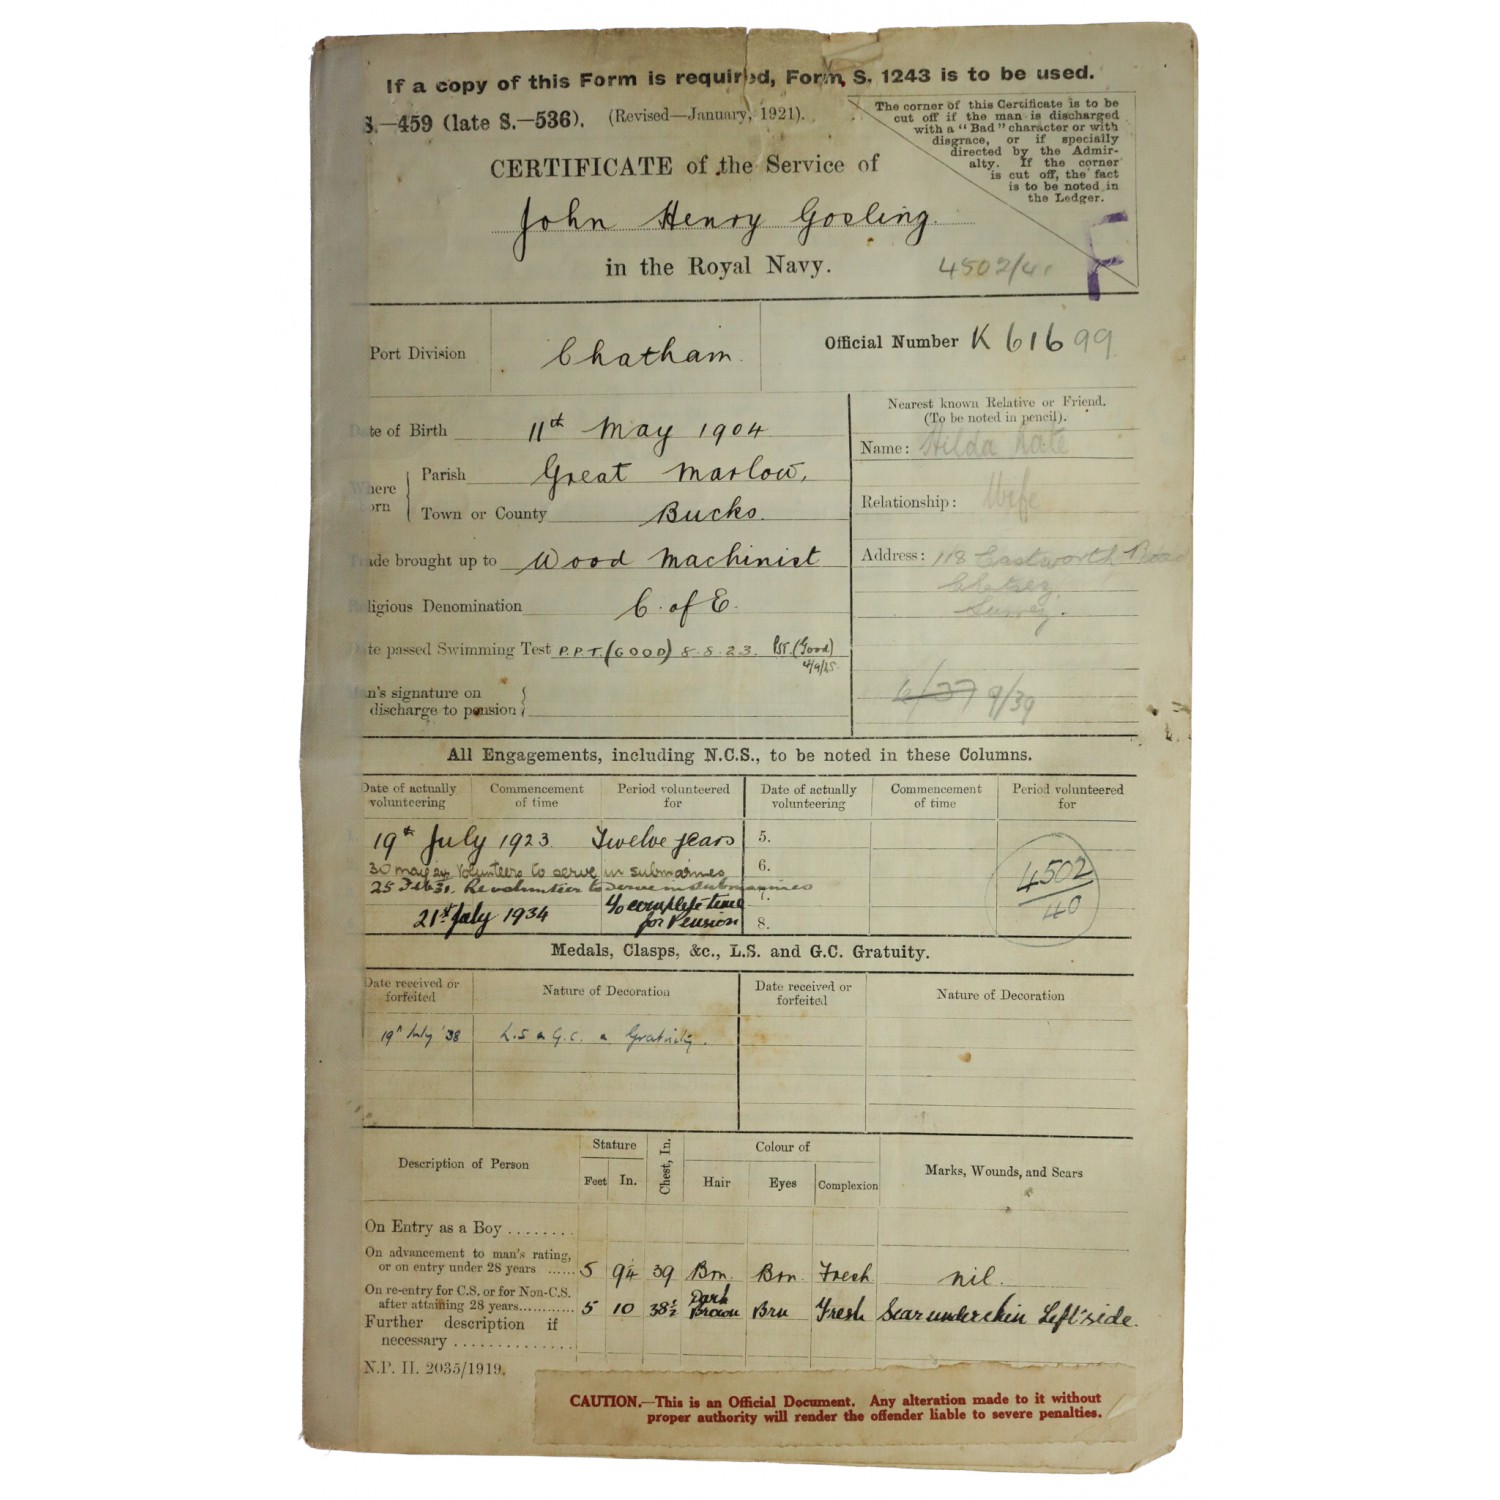 If a copy of this Form is required, Form S. 1243 is to be used.
S.—459 (late S.—536). (Revised—January, 1921).
The corner of this Certificate is to be
cut off if the man is discharged
with a "Bad" character or with
disgrace, or if specially
directed by the Admir-
alty. If the corner
is cut off, the fact
is to be noted in
the Ledger.
CERTIFICATE of the Service of
John Henry Gosling.
in the Royal Navy.
4502/4
F
Port Division Chatham.
Official Number K 61699
Date of Birth 11th May 1904
Where Born
Parish Great Marlow,
Town or County Bucks.
Trade brought up to Wood Machinist
Religious Denomination C. of E.
Date passed Swimming Test P.P.T. (GOOD) 8.8.23. PST. (Good)
4/9/25
Man's signature on
discharge to pension
Nearest known Relative or Friend.
(To be noted in pencil).
Name: Hilda Kate
Relationship: Wife
Address: 118 Eastworth Road
Chertsey.
Surrey.
6/37 9/39
All Engagements, including N.C.S., to be noted in these Columns.
Date of actually volunteering Commencement of time Period volunteered for Date of actually volunteering Commencement of time Period volunteered for
1. 19th July 1923. Twelve years 5.
30 May 24 Volunteers to serve in submarines 6.
25 Feb 31. Revolunteer to serve in submarines 7.
21st July 1934 To complete time for Pension 8.
4502/40
Medals, Clasps, &c., L.S. and G.C. Gratuity.
Date received or forfeited Nature of Decoration Date received or forfeited Nature of Decoration
19th July '38 L.S & G.C. & Gratuity.
Description of Person Stature Chest, In. Colour of Marks, Wounds, and Scars
Feet In. Hair Eyes Complexion
On Entry as a Boy ........
On advancement to man's rating,
or on entry under 28 years ...... 5 9¼ 39 Brn. Brn. Fresh nil.
On re-entry for C.S. or for Non-C.S.
after attaining 28 years............ 5 10 38½ Dark Brown Brn Fresh Scar under chin Left side.
Further description if
necessary ..............
N.P. II. 2035/1919.
CAUTION.—This is an Official Document. Any alteration made to it without
proper authority will render the offender liable to severe penalties.